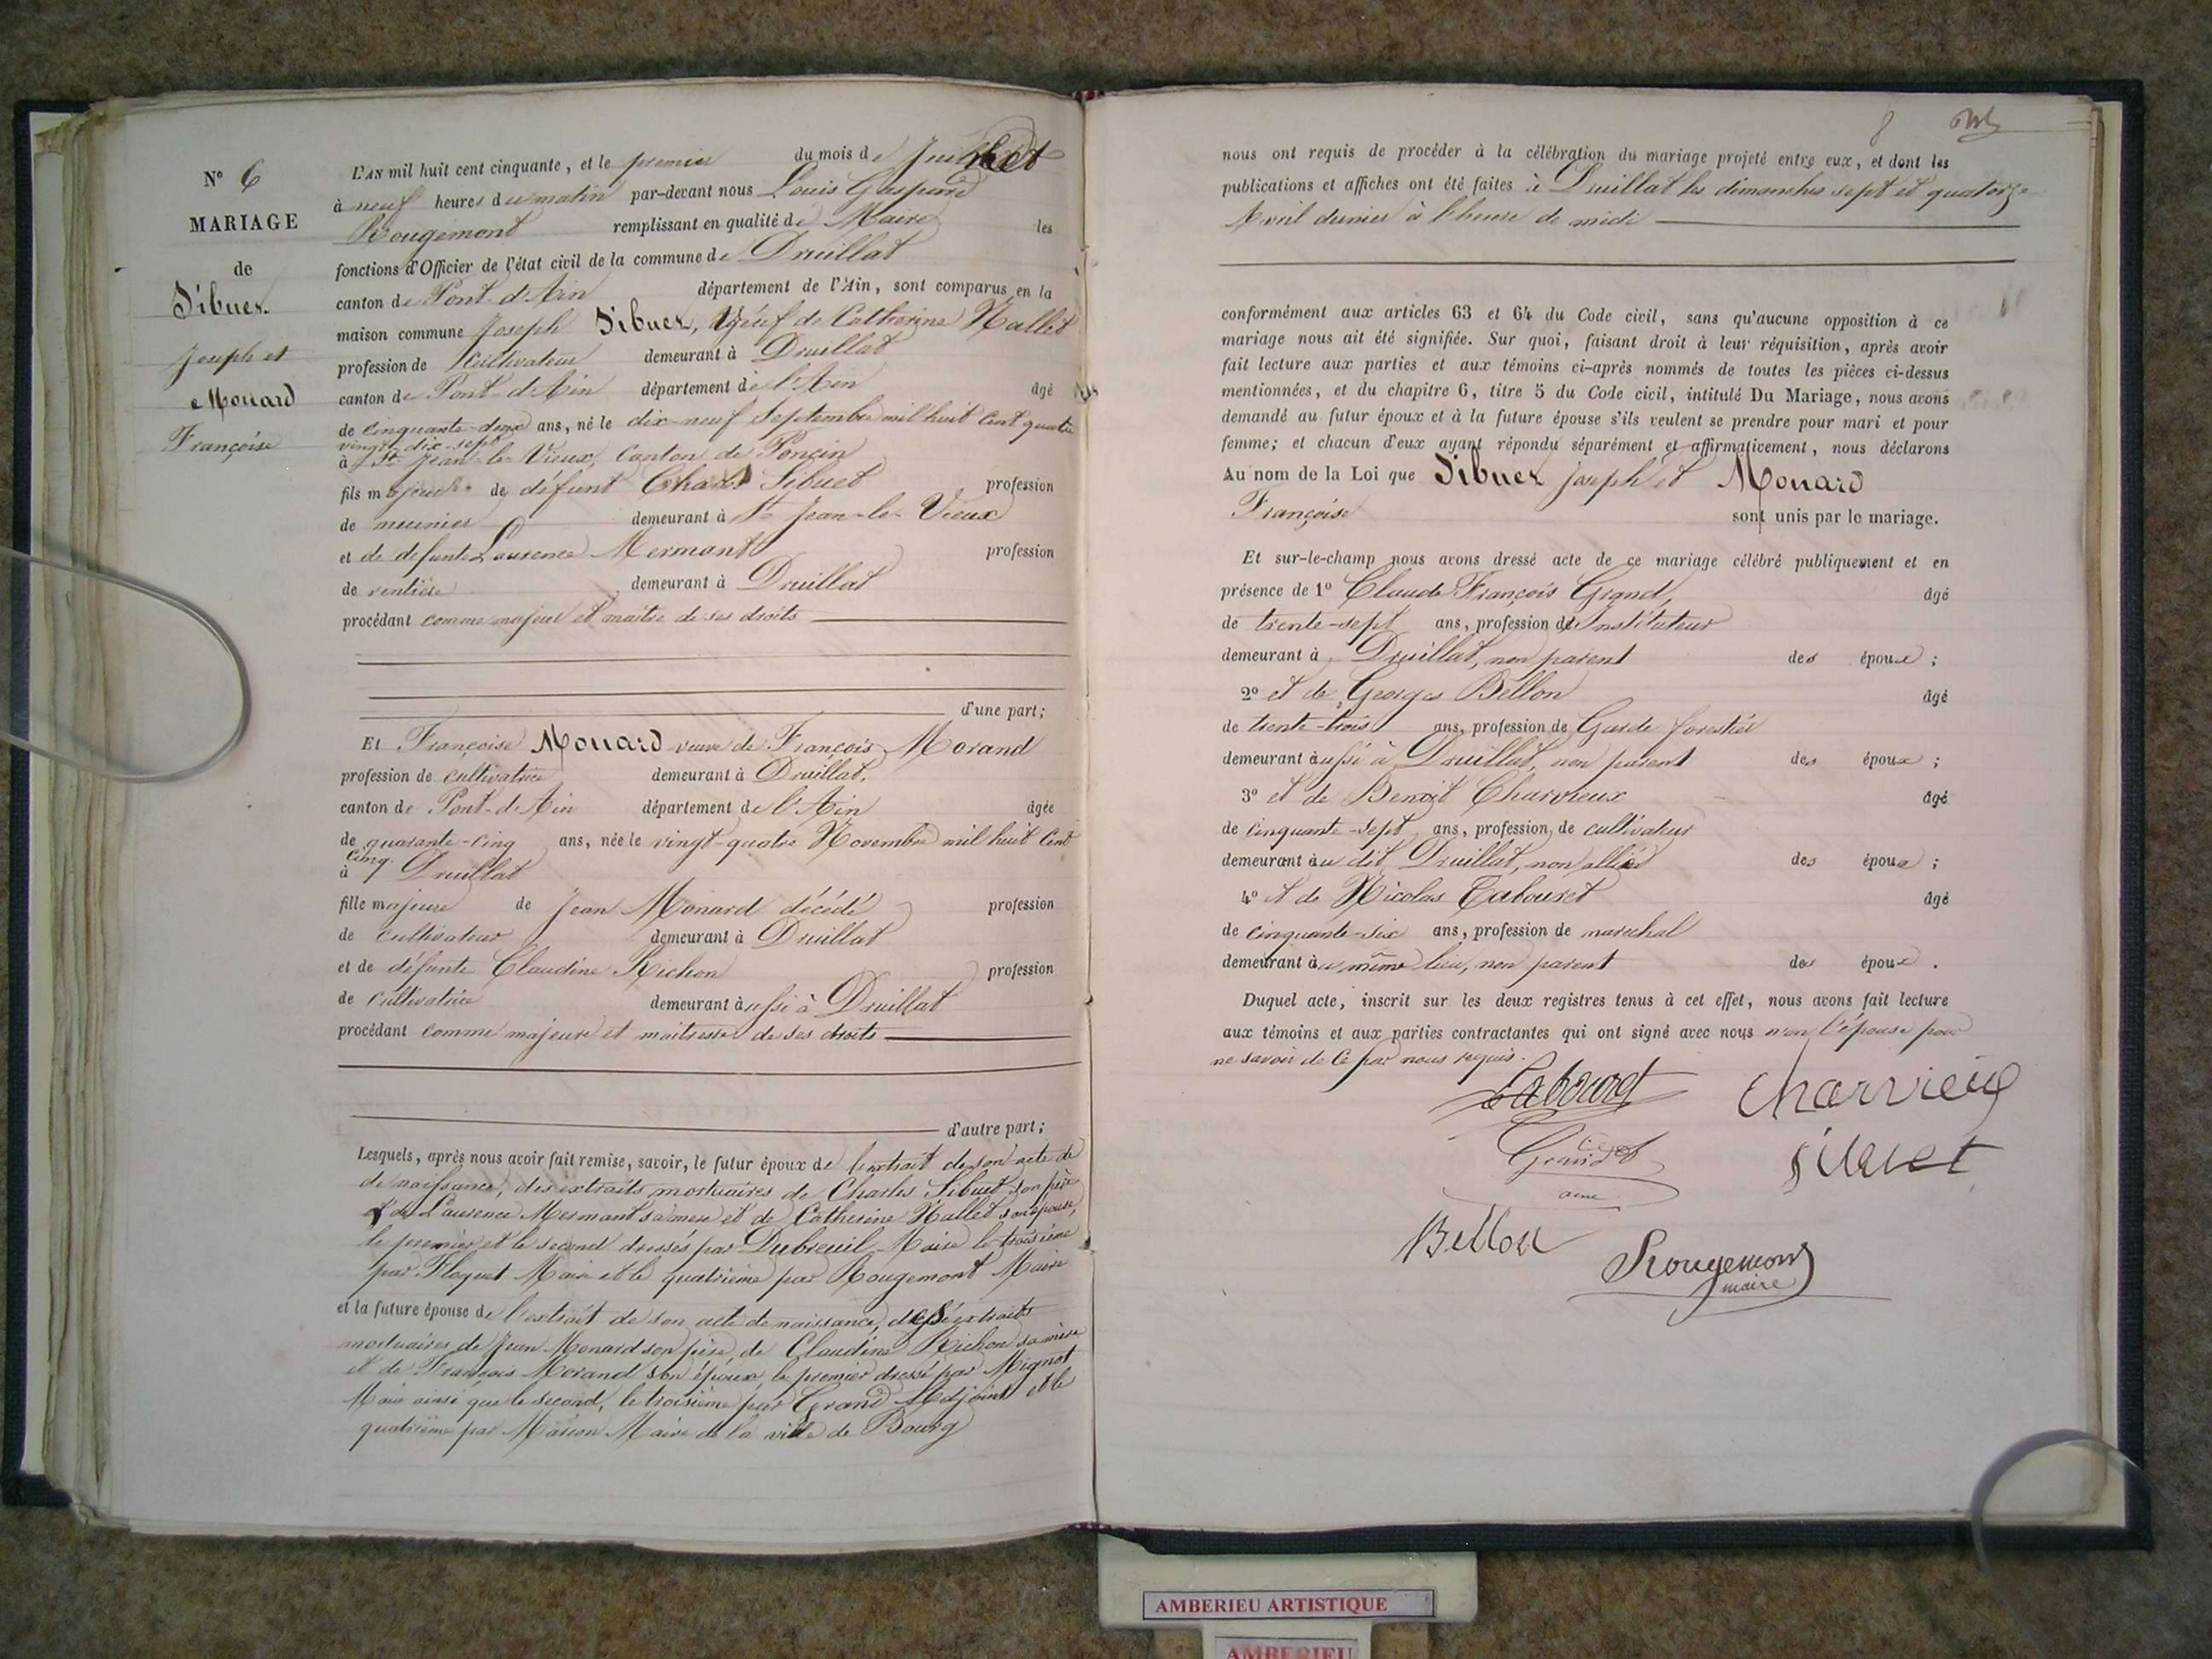 N° 6
MARIAGE
de
Sibuet
Joseph et
Monard
Françoise
L'AN mil huit cent cinquante, et le premier du mois de Juillet
à neuf heures du matin par-devant nous Louis Gaspard
Rougemont remplissant en qualité de Maire les
fonctions d'Officier de l'état civil de la commune de Druillat
canton de Pont-d'Ain département de l'Ain, sont comparus en la
maison commune Joseph Sibuet, Veuf de Catherine Nallet
profession de cultivateur demeurant à Druillat
canton de Pont-d'Ain département de l'Ain âgé
de cinquante-deux ans, né le dix-neuf Septembre mil huit cent quatre
vingt-dix-sept
à St Jean-le-Vieux, Canton de Poncin
fils majeur de défunt Charles Sibuet profession
de meunier demeurant à St Jean-le-Vieux
et de defunte Laurence Mermant profession
de rentière demeurant à Druillat
procédant comme majeur et maître de ses droits
d'une part;
Et Françoise Monard veuve de François Morand
profession de cultivatrice demeurant à Druillat,
canton de Pont-d'Ain département de l'Ain âgée
de quarante-cinq ans, née le vingt-quatre Novembre mil huit Cent
cinq.
à Druillat
fille majeure de Jean Monard décédé profession
de cultivateur demeurant à Druillat
et de défunte Claudine Richon profession
de cultivatrice demeurant aussi à Druillat
procédant comme majeure et maitresse de ses droits
d'autre part;
Lesquels, après nous avoir fait remise, savoir, le futur époux de l'extrait de son acte de
de naissance, des extraits mortuaires de Charles Sibuet son père
et de Laurence Mermant sa mere et de Catherine Nallet son épouse,
le premier et le second dressés par Dubreuil Maire le troisième
par Floquet Maire et le quatrième par Rougemont Maire
et la future épouse de l'extrait de son acte de naissance, des extraits
mortuaires de Jean Monard son père, de Claudine Richon sa mère
et de François Morand son époux, le premier dressé par Mignot
Maire ainsi que le second, le troisième par Grand Adjoint et le
quatrième par Marion Maire de la ville de Bourg
8
nous ont requis de procéder à la célébration du mariage projeté entre eux, et dont les
publications et affiches ont été faites à Druillat les dimanches sept et quatorze
Avril dernier à l'heure de midi
conformément aux articles 63 et 64 du Code civil, sans qu'aucune opposition à ce
mariage nous ait été signifiée. Sur quoi, faisant droit à leur réquisition, après avoir
fait lecture aux parties et aux témoins ci-après nommés de toutes les pièces ci-dessus
mentionnées, et du chapitre 6, titre 5 du Code civil, intitulé Du Mariage, nous avons
demandé au futur époux et à la future épouse s'ils veulent se prendre pour mari et pour
femme; et chacun d'eux ayant répondu séparément et affirmativement, nous déclarons
Au nom de la Loi que Sibuet Joseph et Monard
Françoise sont unis par le mariage.
Et sur-le-champ nous avons dressé acte de ce mariage célébré publiquement et en
présence de 1° Claude François Grand, âgé
de trente-sept ans, profession d'Instituteur
demeurant à Druillat, non parent des époux;
2° et de Georges Bellon âgé
de trente-trois ans, profession de Garde forestier
demeurant aussi à Druillat, non parent des époux;
3° et de Benoit Charvieux âgé
de cinquante-sept ans, profession de cultivateur
demeurant au dit Druillat, non allié des époux;
4° et de Nicolas Tabouret âgé
de cinquante-six ans, profession de marechal
demeurant au même lieu, non parent des époux.
Duquel acte, inscrit sur les deux registres tenus à cet effet, nous avons fait lecture
aux témoins et aux parties contractantes qui ont signé avec nous non l'épouse pour
ne savoir de ce par nous requis.
Tabouret Charvieux
Grand Sibuet
Bellon Rougemont
maire
AMBERIEU ARTISTIQUE
AMBERIEU